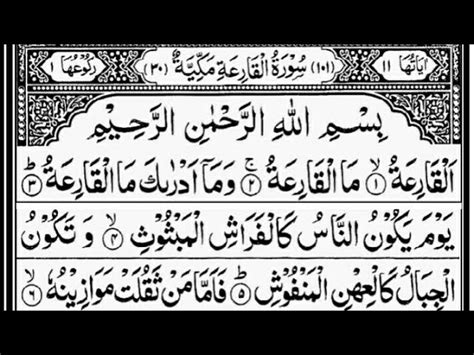 اٰيَاتُهَا ١١ (١٠١) سُوْرَةُ الْقَارِعَةِ مَكِّيَّةٌ (٣٠) رُكُوْعُهَا ١
بِسْمِ اللهِ الرَّحْمٰنِ الرَّحِيْمِ
اَلْقَارِعَةُ ۙ﴿١﴾ مَا الْقَارِعَةُ ۚ﴿٢﴾ وَمَاۤ اَدْرٰىكَ مَا الْقَارِعَةُ ؕ﴿٣﴾
يَوْمَ يَكُوْنُ النَّاسُ كَالْفَرَاشِ الْمَبْثُوْثِ ۙ﴿٤﴾ وَ تَكُوْنُ
الْجِبَالُ كَالْعِهْنِ الْمَنْفُوْشِ ؕ﴿٥﴾ فَاَمَّا مَنْ ثَقُلَتْ مَوَازِيْنُهٗ ۙ﴿٦﴾